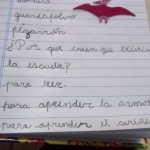 guardapolvo
pizarrón
¿Por qué creen que
la escuela?
para leer.
para aprender la
para aprender el cariño